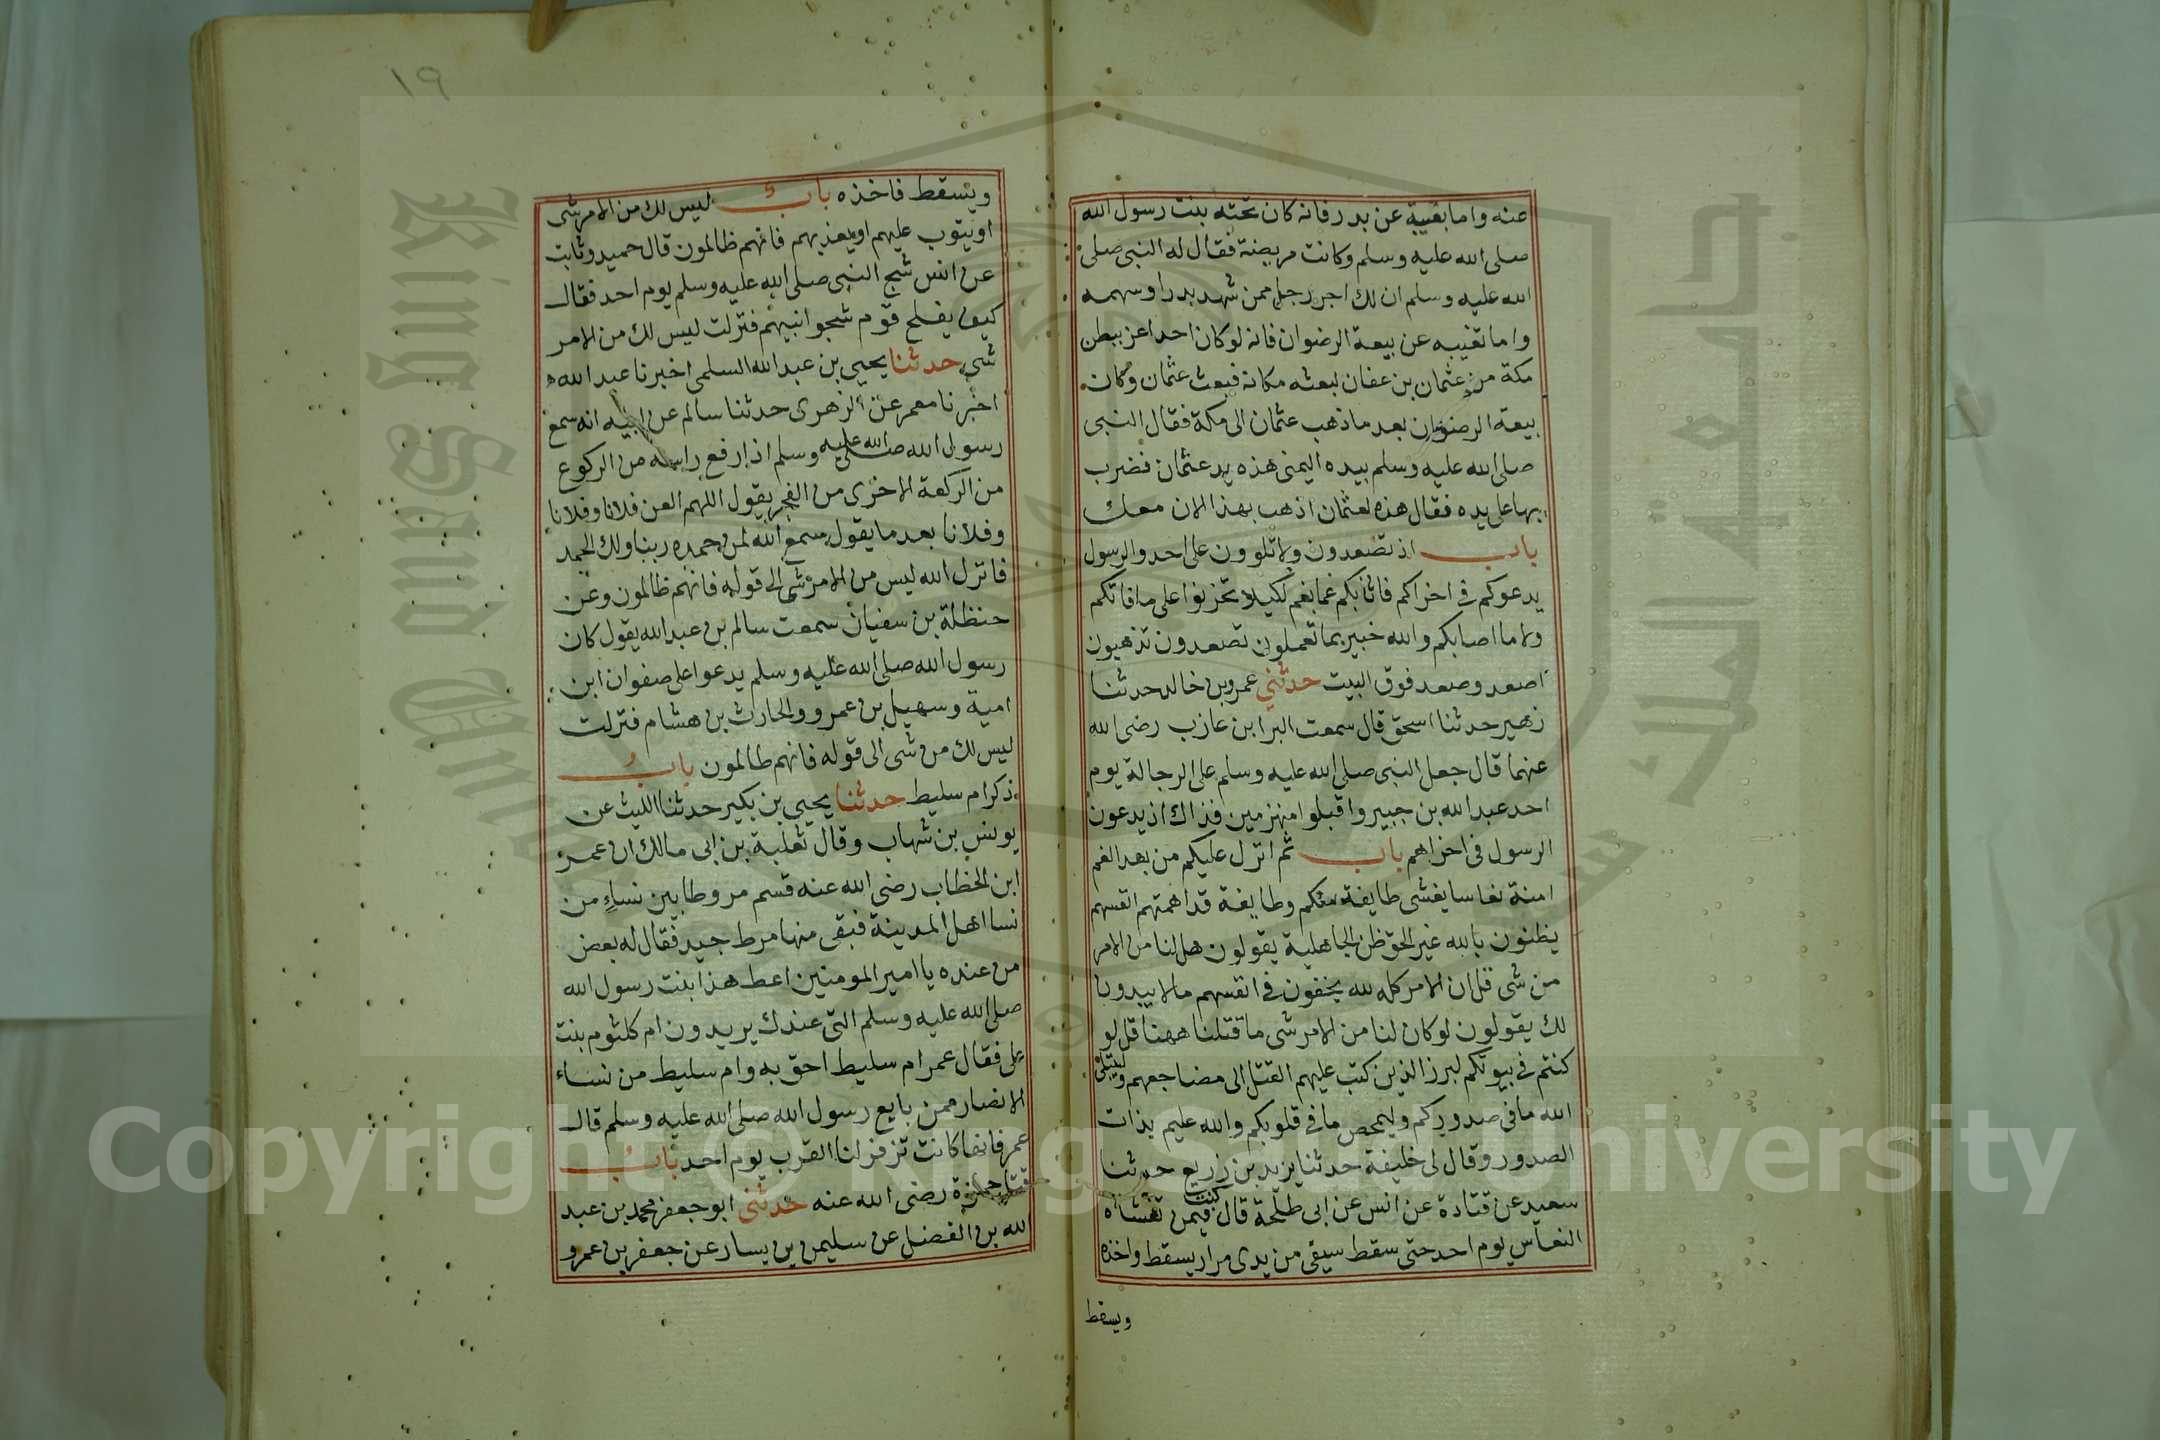 عنه واما بغيبة عن بدر فانه كان تحته بنت رسول الله
صلى الله عليه وسلم وكانت مريضة فقال له النبي صلى
الله عليه وسلم ان لك اجر رجل ممن شهد بدرا وسهمه
واما تغيبه عن بيعة الرضوان فانه لو كان احد اعز ببطن
مكة من عثمان بن عفان لبعثه مكانه فبعث عثمان وكان
بيعة الرضوان بعد ما ذهب عثمان الى مكة فقال النبي
صلى الله عليه وسلم بيده اليمنى هذه يد عثمان فضرب
بها على يده فقال هذه لعثمان اذهب بهذا الان معك
باب اذ تصعدون ولا تلوون على احد والرسول
يدعوكم في اخراكم فاثابكم غما بغم لكيلا تحزنوا على ما فاتكم
ولا ما اصابكم والله خبير بما تعملون تصعدون تذهبون
اصعد وصعد فوق البيت حدثني عمرو بن خالد حدثنا
زهير حدثنا اسحق قال سمعت البرا ابن عازب رضى الله
عنهما قال جعل النبي صلى الله عليه وسلم على الرجالة يوم
احد عبد الله بن جبير واقبلوا منهزمين فذاك اذ يدعون
الرسول في اخراهم باب ثم انزل عليكم من بعد الغم
امنة نعاسا يغشى طايفة منكم وطايفة قد اهمتهم انفسهم
يظنون بالله غير الحق ظن الجاهلية يقولون هل لنا من الامر
من شى قل ان الامر كله لله يخفون في انفسهم ما لا يبدون
لك يقولون لو كان لنا من الامر شى ما قتلنا ههنا قل لو
كنتم في بيوتكم لبرز الذين كتب عليهم القتل الى مضاجعهم وليبتلى
الله ما فى صدوركم وليمحص ما فى قلوبكم والله عليم بذات
الصدور وقال لى خليفة حدثنا يزيد بن زريع حدثنا
سعيد عن قتادة عن انس عن ابى طلحة قال كنت فيمن تغشاه
النعاس يوم احد حتى سقط سيفى من يدى مرار يسقط واخذه
ويسقط
١٩
ويسقط فاخذه باب ليس لك من الامر شى
او يتوب عليهم او يعذبهم فانهم ظالمون قال حميد وثابت
عن انس شج النبي صلى الله عليه وسلم يوم احد فقال
كيف يفلح قوم شجوا نبيهم فنزلت ليس لك من الامر
شى حدثنا يحيى بن عبد الله السلمى اخبرنا عبد الله
اخبرنا معمر عن الزهرى حدثنا سالم عن ابيه انه سمع
رسول الله صلى الله عليه وسلم اذا رفع راسه من الركوع
من الركعة الاخرى من الفجر يقول اللهم العن فلانا وفلانا
وفلانا بعد ما يقول سمع الله لمن حمده ربنا ولك الحمد
فانزل الله ليس من الامر شى الى قوله فانهم ظالمون وعن
حنظلة بن سفيان سمعت سالم بن عبد الله يقول كان
رسول الله صلى الله عليه وسلم يدعوا على صفوان ابن
امية وسهيل بن عمرو والحارث بن هشام فنزلت
ليس لك من شى الى قوله فانهم ظالمون باب
ذكر ام سليط حدثنا يحيى بن بكير حدثنا الليث عن
يونس بن شهاب وقال ثعلبة بن ابى مالك ان عمر
ابن الخطاب رضى الله عنه قسم مروطا بين نساء من
نسا اهل المدينة فبقى منها مرط جيد فقال له بعض
من عنده يا امير المومنين اعط هذا بنت رسول الله
صلى الله عليه وسلم التى عندك يريدون ام كلثوم بنت
على فقال عمر ام سليط احق به وام سليط من نساء
الانصار ممن بايع رسول الله صلى الله عليه وسلم قال
عمر فانها كانت تزفر لنا القرب يوم احد باب
قتل حمزة رضى الله عنه حدثنى ابو جعفر محمد بن عبد
الله بن الفضل عن سليمن بن يسار عن جعفر بن عمرو
King Saud University
جامعة الملك سعود
Copyright © King Saud University